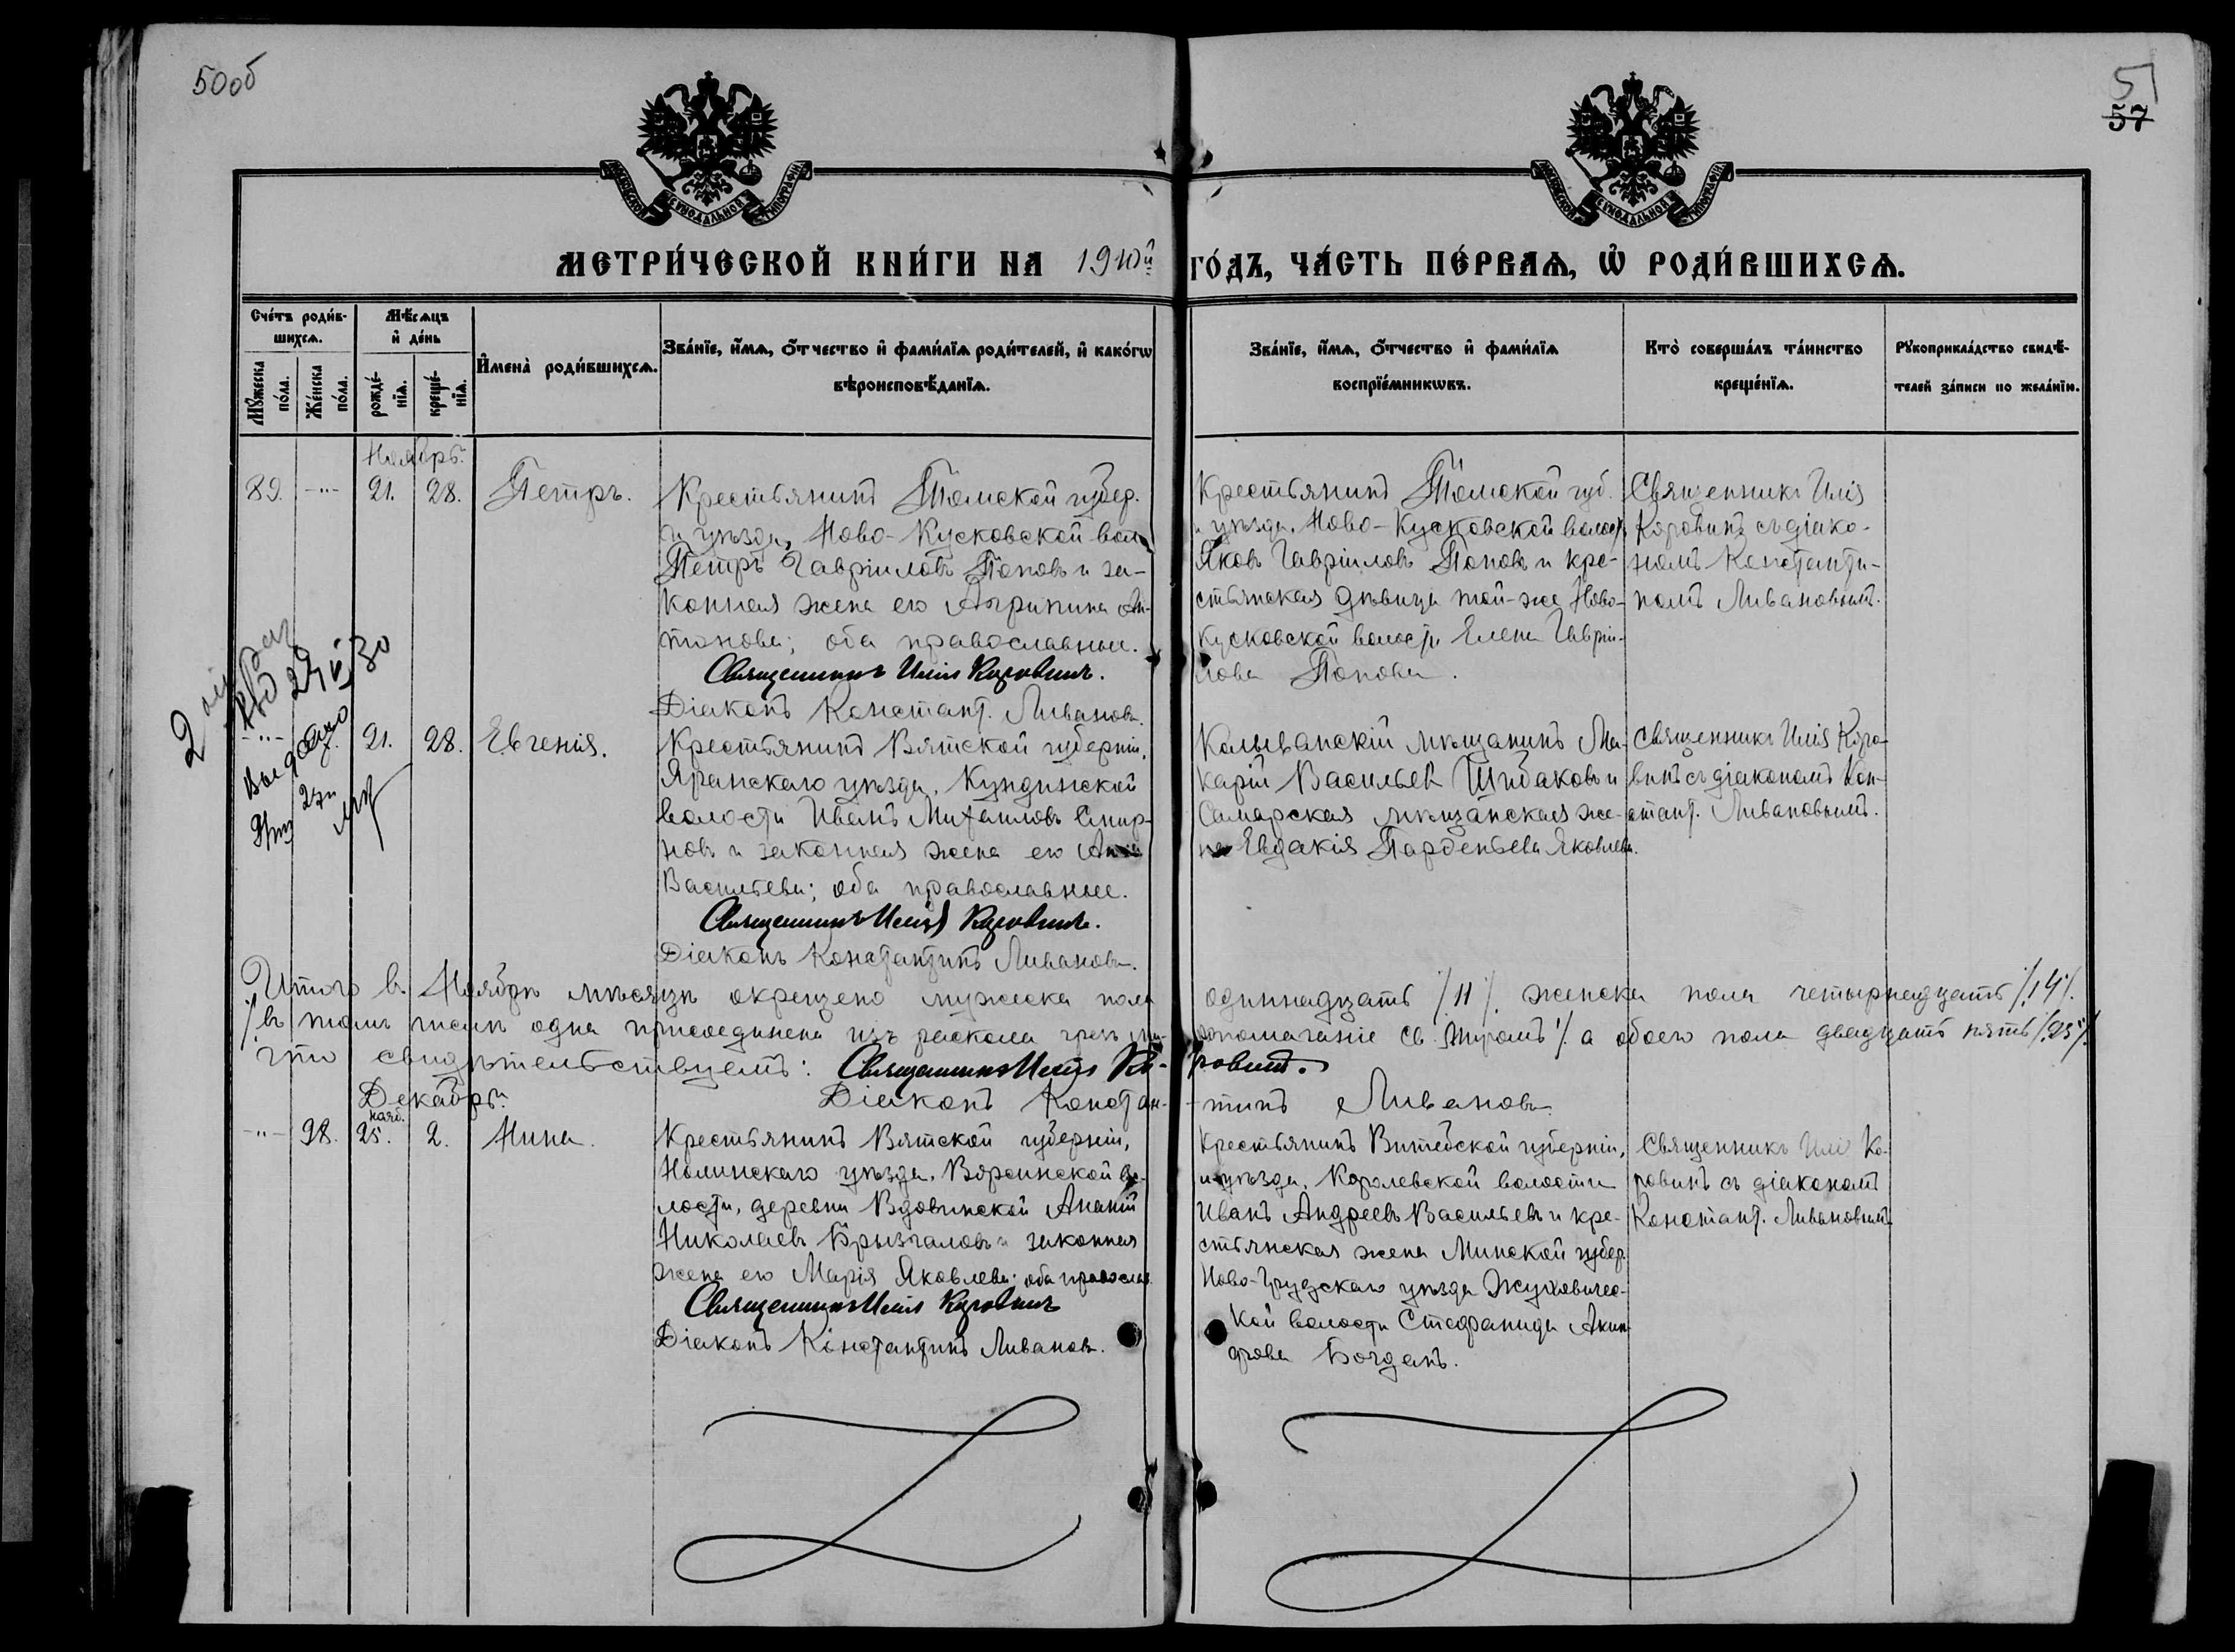 50об
51
57
МОСКОВСКОЙ СѴНОДАЛЬНОЙ ТИПОГРАФІИ
МОСКОВСКОЙ СѴНОДАЛЬНОЙ ТИПОГРАФІИ
МЕТРИ́ЧЕСКОЙ КНИ́ГИ НА 1910й ГО́ДЪ, ЧА́СТЬ ПЕ́РВАѦ, Ѡ҆ РОДИ́ВШИХСѦ.
Сче́тъ роди́в-
шихсѧ.
Мꙋ́жеска по́ла.
Же́нска по́ла.
Мѣ́сѧцъ
и҆ де́нь
рожде́-
нїѧ.
креще́-
нїѧ.
И҆мена̀ роди́вшихсѧ.
Зва́нїе, и҆́мѧ, ѻ҆́тчество и҆ фами́лїѧ роди́телей, и҆ како́гѡ
вѣроисповѣ́данїѧ.
Зва́нїе, и҆́мѧ, ѻ҆́тчество и҆ фами́лїѧ
воспрїе́мникѡвъ.
Кто̀ соверша́лъ та́инство
креще́нїѧ.
Рꙋкоприкла́дство свидѣ́-
телей за́писи по жела́нїю.
Ноябрь.
89. -"- 21. 28. Петръ.
Крестьянинъ Томской губер.
и уѣзда, Ново-Кусковской вол.
Петръ Гавріиловъ Поповъ и за-
конная жена его Агрипина Ан-
тонова; оба православные.
Священникъ Илія Коровинъ.
Діаконъ Констант. Ливановъ.
Крестьянинъ Томской губ.
и уѣзда, Ново-Кусковской волост.
Яковъ Гавріиловъ Поповъ и кре-
стьянская дѣвица той-же Ново-
Кусковской волости Елена Гавріи-
лова Попова.
Священникъ Илія
Коровинъ съ діако-
номъ Константи-
номъ Ливановымъ.
2
Выдано
-"- 21. 28. Евгенія.
Крестьянинъ Вятской губерніи,
Яранскаго уѣзда, Кундинской
волости Иванъ Михаиловъ Смир-
новъ и законная жена его Анна
Васильева; оба православные.
Священникъ Илія Коровинъ.
Діаконъ Константинъ Ливановъ.
Колыванскій мѣщанинъ Ма-
карій Васильев Шибаковъ и
Самарская мѣщанская же-
на Евдакія Парфеньева Яковлева.
Священникъ Илія Коро-
винъ съ діакономъ Кон-
стант. Ливановымъ.
Итого в. Ноябрѣ мѣсяцѣ окрещено мужеска пола одиннадцать /11/. женска пола четырнадцать /14/.
/въ томъ числѣ одна присоединена изъ раскола чрезъ мѵ-ропомазаніе св. Мѵромъ/ а обоего пола двадцать пять /25/.
что свидѣтельствуемъ: Священникъ Илія Ко-ровинъ.
Діаконъ Констан-тинъ Ливановъ
Декабрь.
нояб.
-"- 98. 25. 2. Нина.
Крестьянинъ Вятской губерніи,
Нолинскаго уѣзда, Ворсинской во-
лости, деревни Вдовинской Ананій
Николаевъ Брызгаловъ и законная
жена его Марія Яковлева; оба православ.
Священникъ Илія Коровинъ
Діаконъ Константинъ Ливановъ.
Крестьянинъ Витебской губерніи,
и уѣзда, Королевской волости
Иванъ Андреевъ Васильевъ и кре-
стьянская жена Минской губер.
Ново-Грудскаго уѣзда Жуховичес-
кой волости Стефанида Акин-
фова Богданъ.
Священникъ Илія Ко-
ровинъ съ діакономъ
Констант. Ливановымъ